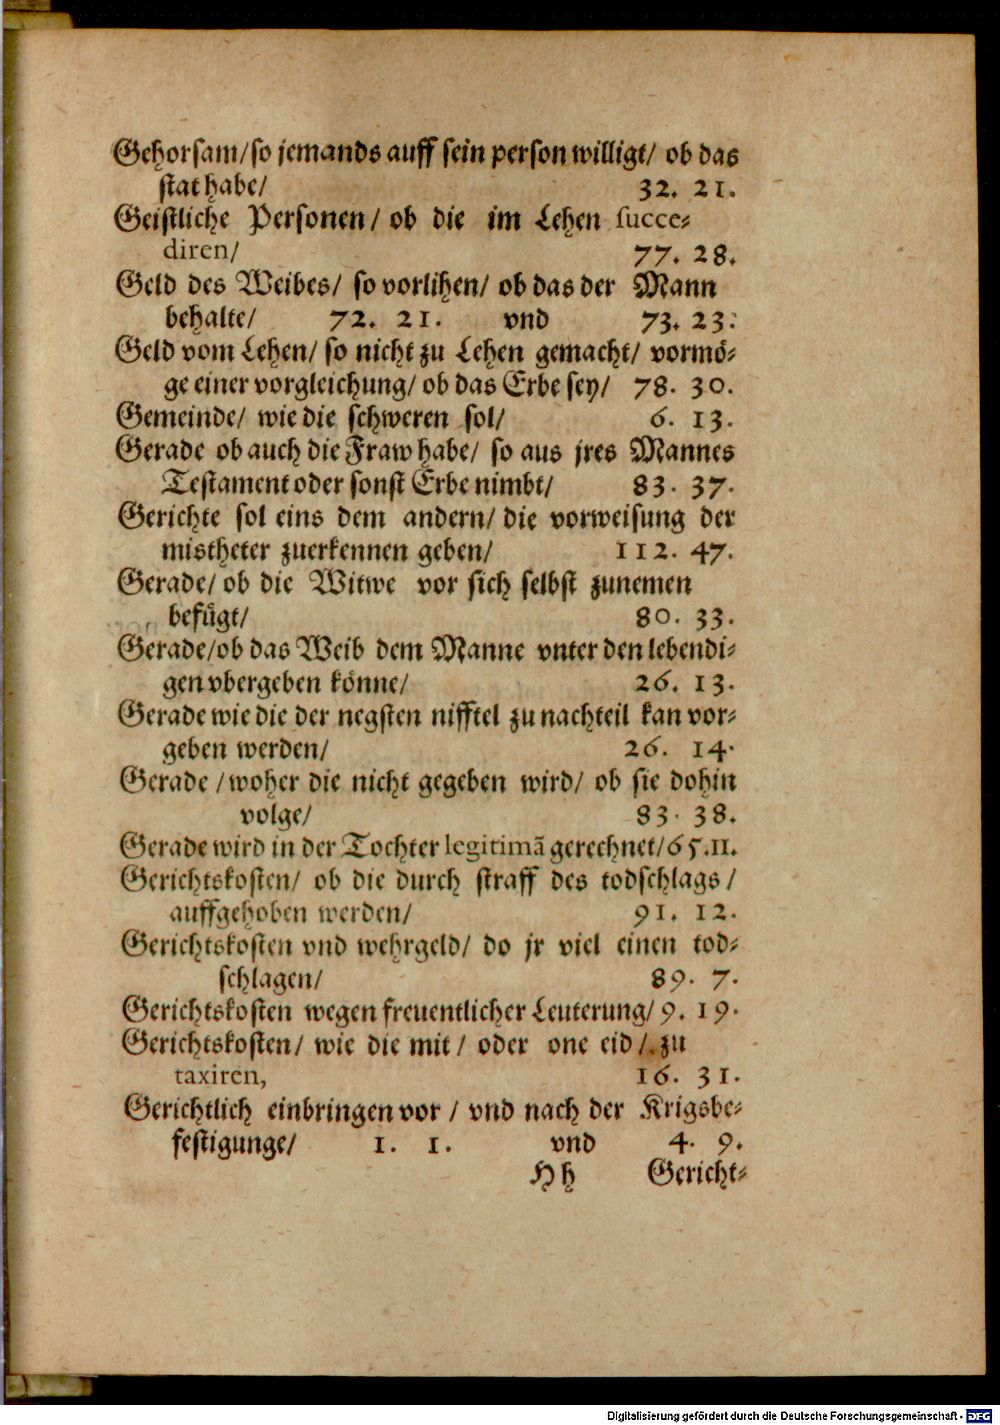 Gehorsam/so jemands auff sein person willigt/ ob das
stat habe/ 32. 21.
Geistliche Personen/ ob die im Lehen succe-
diren/ 77. 28.
Geld des Weibes/ so vorlihen/ ob das der Mann
behalte/ 72. 21. vnd 73. 23.
Geld vom Lehen/ so nicht zu Lehen gemacht/ vormö-
ge einer vorgleichung/ ob das Erbe sey/ 78. 30.
Gemeinde/ wie die schweren sol/ 6. 13.
Gerade ob auch die Fraw habe/ so aus jres Mannes
Testament oder sonst Erbe nimbt/ 83. 37.
Gerichte sol eins dem andern/ die vorweisung der
mistheter zuerkennen geben/ 112. 47.
Gerade/ ob die Witwe vor sich selbst zunemen
befügt/ 80. 33.
Gerade/ob das Weib dem Manne vnter den lebendi-
gen vbergeben könne/ 26. 13.
Gerade wie die der negsten nifftel zu nachteil kan vor-
geben werden/ 26. 14.
Gerade /woher die nicht gegeben wird/ ob sie dohin
volge/ 83. 38.
Gerade wird in der Tochter legitimã gerechnet/65.11.
Gerichtskosten/ ob die durch straff des todschlags/
auffgehoben werden/ 91. 12.
Gerichtskosten vnd wehrgeld/ do jr viel einen tod-
schlagen/ 89. 7.
Gerichtskosten wegen freuentlicher Leuterung/ 9. 19.
Gerichtskosten/ wie die mit/ oder one eid/. zu
taxiren, 16. 31.
Gerichtlich einbringen vor / vnd nach der Krigsbe-
festigunge/ 1. 1. vnd 4. 9.
Hh Gericht-
Digitalisierung gefördert durch die Deutsche Forschungsgemeinschaft - DFG